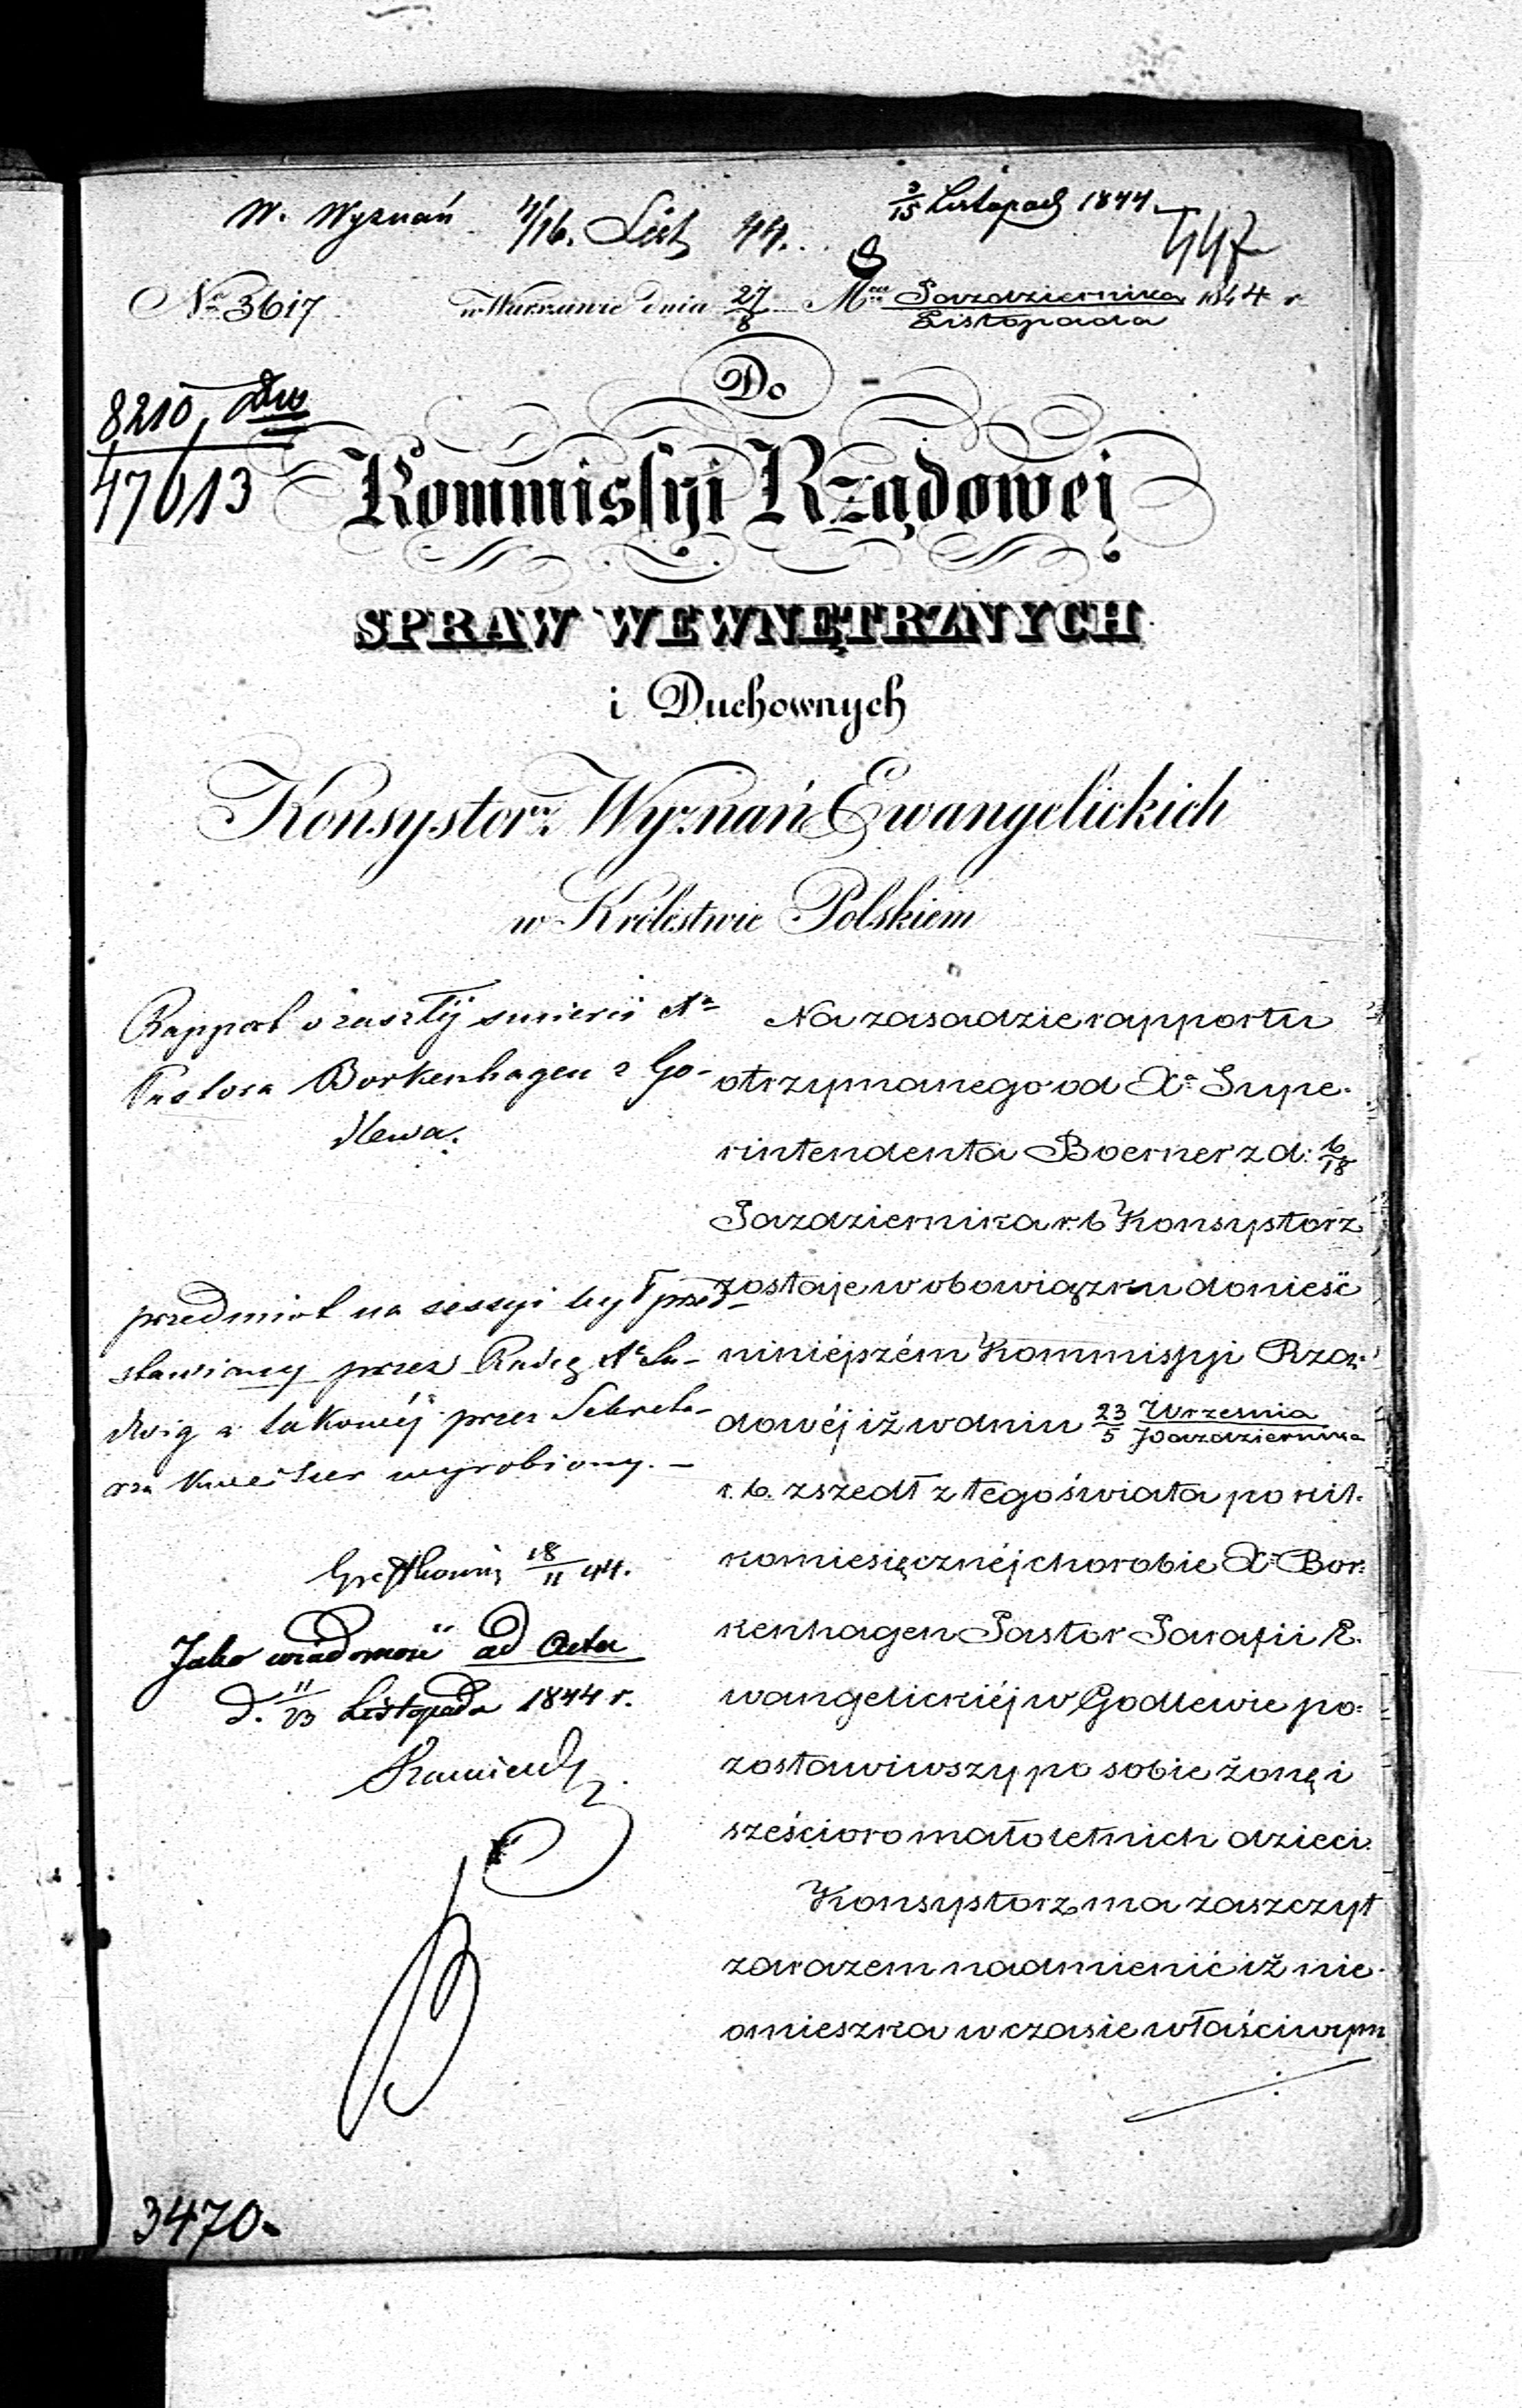 W. Wyznań 4/16. List 44.
3/15 Listopad 1844
447
No 3617 w Warszawie dnia 27/8 Mca Pazdziernika/Listopada 1844 r
8210
47013
Do
Kommissyi Rządowej
SPRAW WEWNĘTRZNYCH
i Duchownych
Konsystorz Wyznań Ewangelickich
w Królestwie Polskiem
Rapport o zaszłéj smierci Xa
Pastora Borkenhagen z Go-
dlewa.
przedmiot na sessyi był przed-
stawiony przez Radcę
a takowéj przez Sekreta-
rza wyrobiony. -
18/11 44.
Jako wiadomość ad Acta
d. 11/23 Listopada 1844 r.
Na zasadzie rapportu
otrzymanego od Xa Supe-
rintendenta Boerner z d: 6/18
Pazdziernika r. b Konsystorz
zostaje w obowiązku donieść
niniéjszém Kommissyi Rzą-
dowéj iż w dniu 23/5 Września/Pazdziernika
r. b. zszedł z tego świata po kil-
komiesięcznéj chorobie X. Bor-
kenhagen Pastor Parafii E-
wangelickiéj w Godlewie po-
zostawiwszy po sobie żonę i
sześcioro małoletnich dzieci.
Konsystorz ma zaszczyt
zarazem nadmienić iż nie-
omieszka w czasie właściwym
3470.